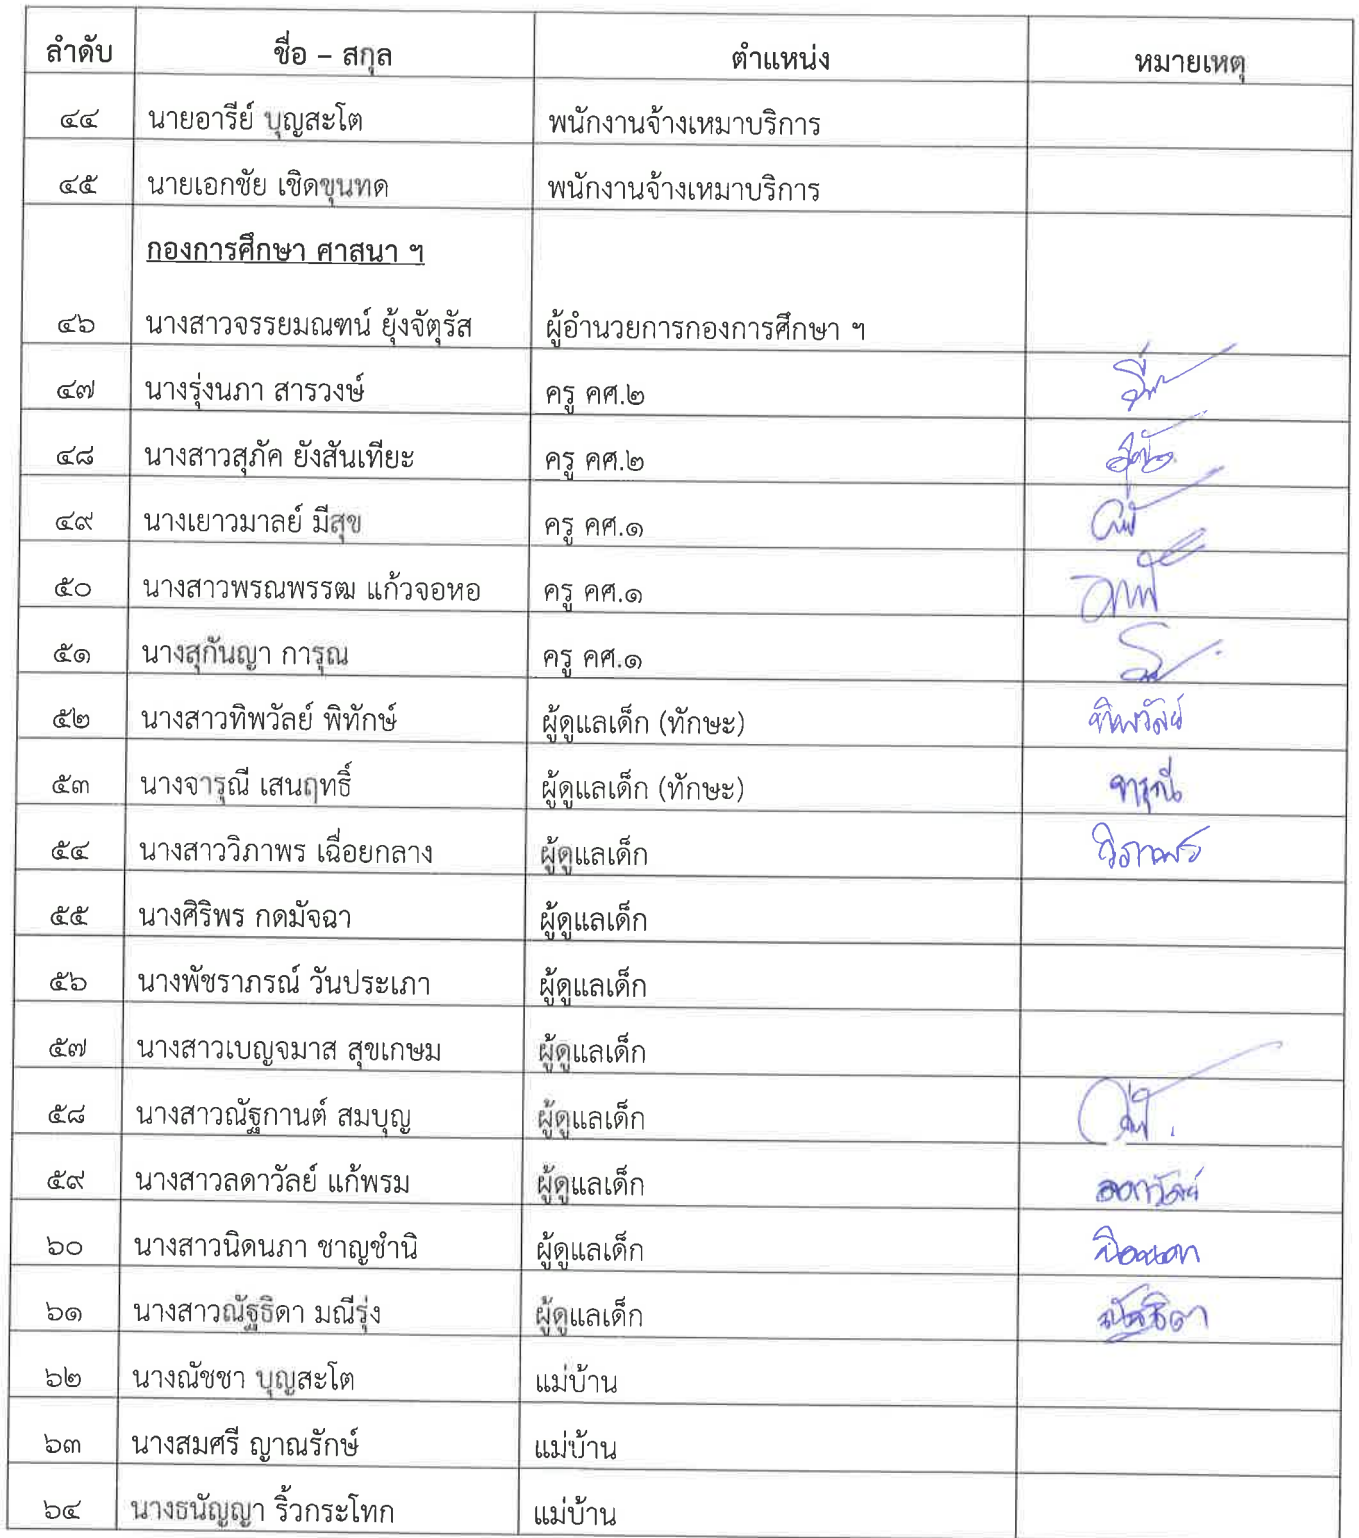 ลำดับ ชื่อ – สกุล ตำแหน่ง หมายเหตุ
๔๔ นายอารีย์ บุญสะโต พนักงานจ้างเหมาบริการ
๔๕ นายเอกชัย เชิดขุนทด พนักงานจ้างเหมาบริการ
กองการศึกษา ศาสนา ฯ
๔๖ นางสาวจรรยมณฑน์ ยุ้งจัตุรัส ผู้อำนวยการกองการศึกษา ฯ
๔๗ นางรุ่งนภา สารวงษ์ ครู คศ.๒
๔๘ นางสาวสุภัค ยังสันเทียะ ครู คศ.๒
๔๙ นางเยาวมาลย์ มีสุข ครู คศ.๑
๕๐ นางสาวพรณพรรฒ แก้วจอหอ ครู คศ.๑
๕๑ นางสุกันญา การุณ ครู คศ.๑
๕๒ นางสาวทิพวัลย์ พิทักษ์ ผู้ดูแลเด็ก (ทักษะ) ทิพวัลย์
๕๓ นางจารุณี เสนฤทธิ์ ผู้ดูแลเด็ก (ทักษะ) จารุณี
๕๔ นางสาววิภาพร เฉื่อยกลาง ผู้ดูแลเด็ก วิภาพร
๕๕ นางศิริพร กดมัจฉา ผู้ดูแลเด็ก
๕๖ นางพัชราภรณ์ วันประเภา ผู้ดูแลเด็ก
๕๗ นางสาวเบญจมาส สุขเกษม ผู้ดูแลเด็ก
๕๘ นางสาวณัฐกานต์ สมบุญ ผู้ดูแลเด็ก
๕๙ นางสาวลดาวัลย์ แก้พรม ผู้ดูแลเด็ก ลดาวัลย์
๖๐ นางสาวนิดนภา ชาญชำนิ ผู้ดูแลเด็ก นิดนภา
๖๑ นางสาวณัฐธิดา มณีรุ่ง ผู้ดูแลเด็ก ณัฐธิดา
๖๒ นางณัชชา บุญสะโต แม่บ้าน
๖๓ นางสมศรี ญาณรักษ์ แม่บ้าน
๖๔ นางธนัญญา ริ้วกระโทก แม่บ้าน